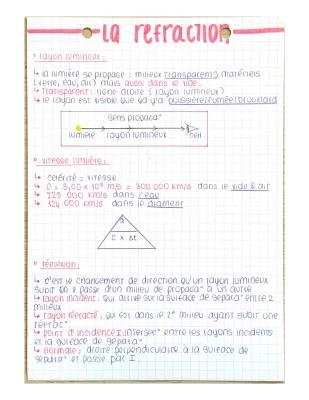 LA REFRACTION
° rayon lumineux :
↳ la lumière se propage : milieux transparents matériels
(verre, eau, air) mais aussi dans le vide.
↳ Transparent : ligne droite (rayon lumineux)
↳ le rayon est visible que qd y'a poussière/fumée/brouillard
sens propaga°
lumière rayon lumineux oeil
° vitesse lumière :
↳ célérité = vitesse
↳ c = 3,00 x 10⁸ m/s = 300 000 km/s dans le vide & air
↳ 225 000 km/s dans l'eau
↳ 124 000 km/s dans le diamant
d
c x Δt
° réflexion :
↳ c'est le changement de direction qu'un rayon lumineux
subit qd il passe d'un milieu de propaga° à un autre
↳ rayon incident : qui arrive sur la surface de separa° entre 2
milieux
↳ rayon réfracté : qui est dans le 2e milieu ayant subit une
refrac°
↳ point d'incidence I : intersec° entre les rayons incidents
et la surface de separa°
↳ normale : droite perpendiculaire à la surface de
separa° et passe par I.